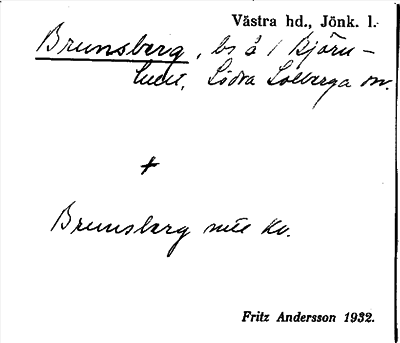 Västra hd., Jönk. l.
Brunsberg, bs å 1 Björn-
lunt, Södra Solberga sn.
+
Brunsbärg nile Kv.
Fritz Andersson 1932.